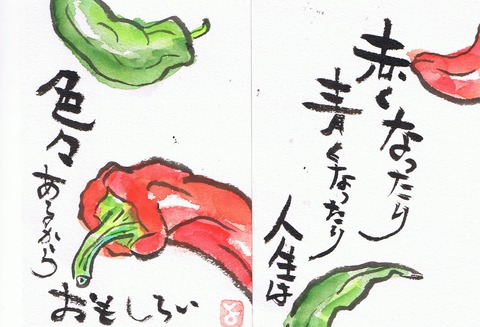 赤くなったり
青くなったり
人生は
色々
あるから
おもしろい